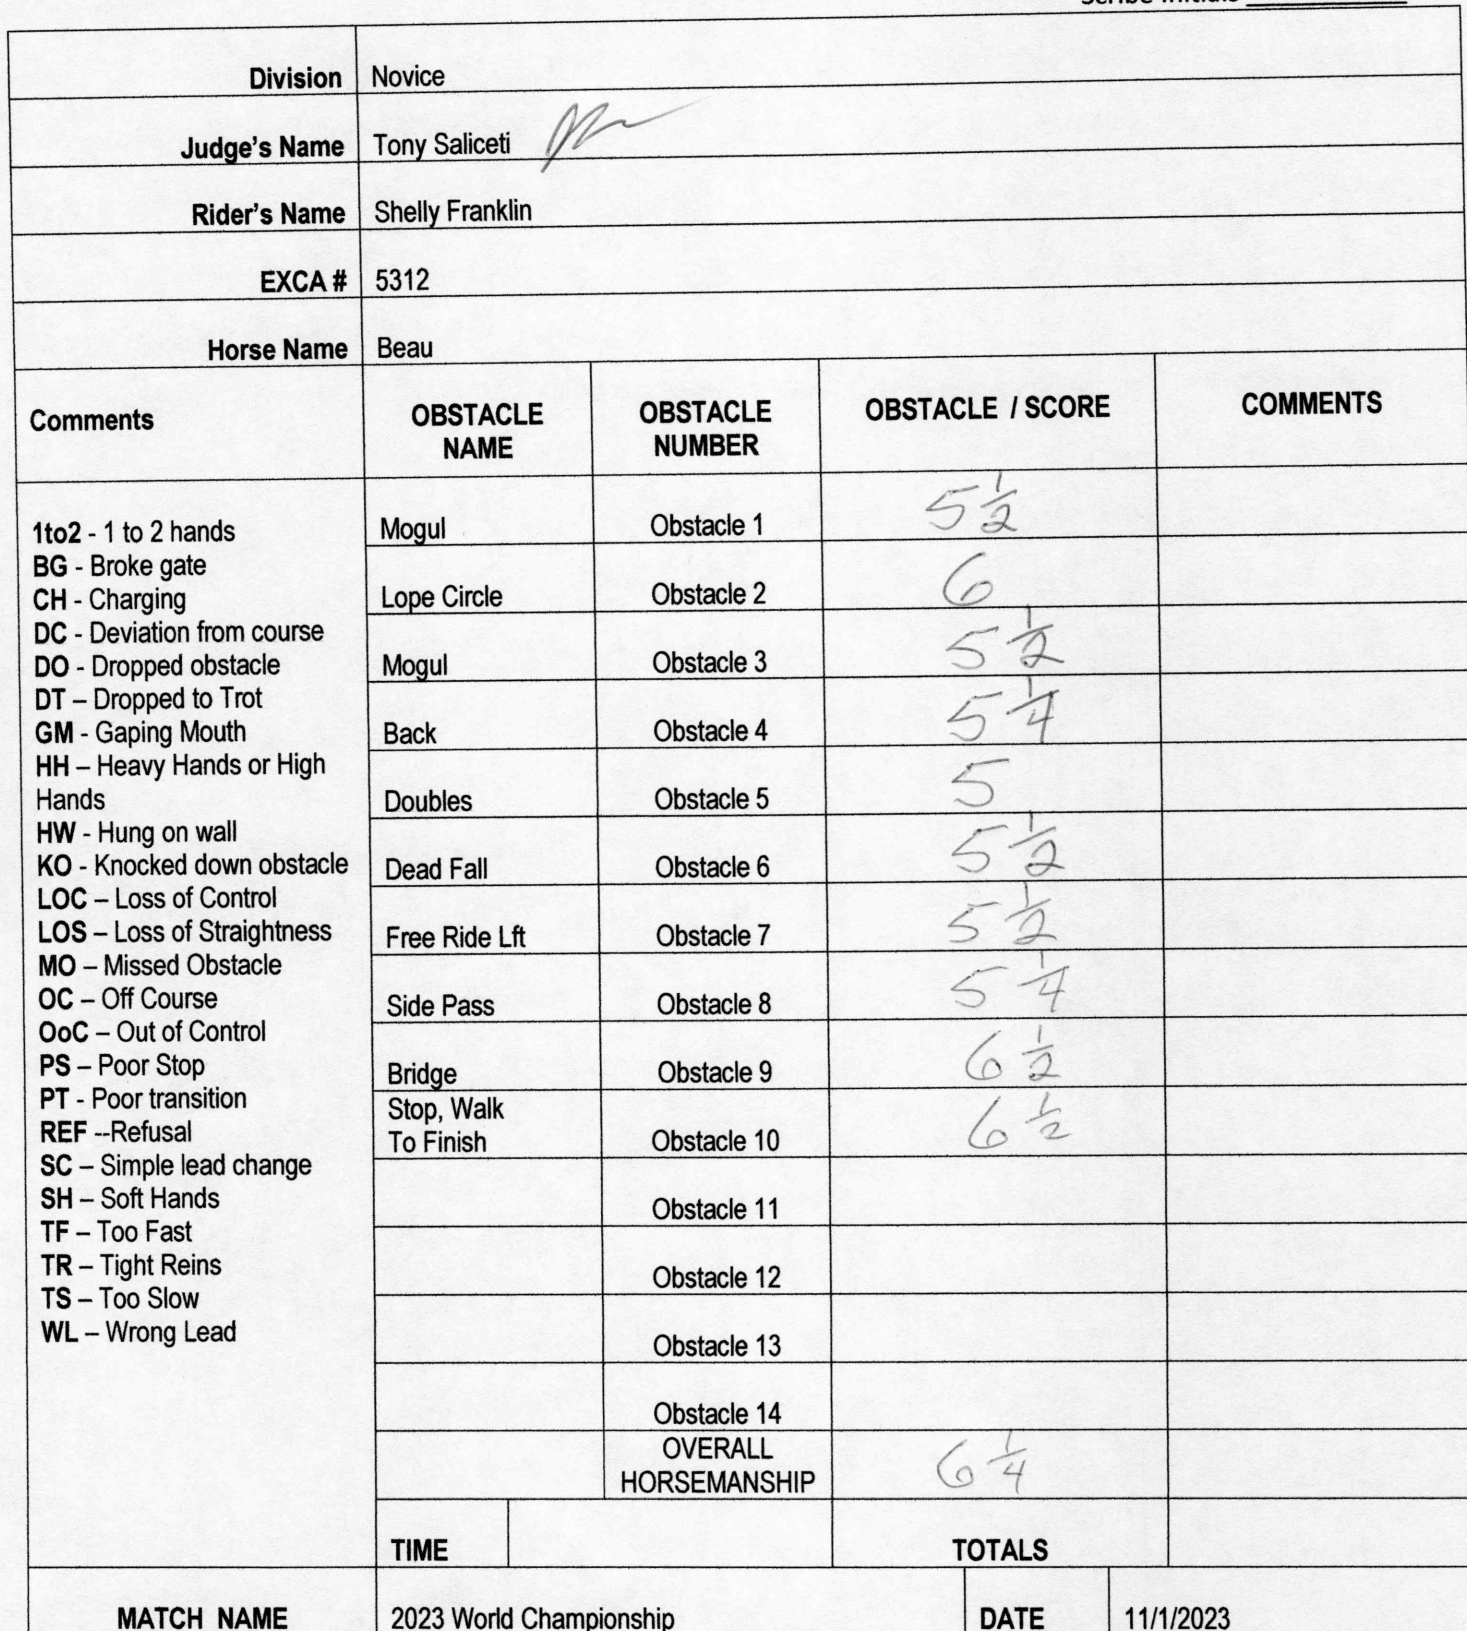 Scribe Initials
Division Novice
Judge's Name Tony Saliceti
Rider's Name Shelly Franklin
EXCA # 5312
Horse Name Beau
Comments OBSTACLE NAME OBSTACLE NUMBER OBSTACLE / SCORE COMMENTS
1to2 - 1 to 2 hands
BG - Broke gate
CH - Charging
DC - Deviation from course
DO - Dropped obstacle
DT – Dropped to Trot
GM - Gaping Mouth
HH – Heavy Hands or High
Hands
HW - Hung on wall
KO - Knocked down obstacle
LOC – Loss of Control
LOS – Loss of Straightness
MO – Missed Obstacle
OC – Off Course
OoC – Out of Control
PS – Poor Stop
PT - Poor transition
REF --Refusal
SC – Simple lead change
SH – Soft Hands
TF – Too Fast
TR – Tight Reins
TS – Too Slow
WL – Wrong Lead
Mogul Obstacle 1 5 1/2
Lope Circle Obstacle 2 6
Mogul Obstacle 3 5 1/2
Back Obstacle 4 5 1/4
Doubles Obstacle 5 5
Dead Fall Obstacle 6 5 1/2
Free Ride Lft Obstacle 7 5 1/2
Side Pass Obstacle 8 5 1/4
Bridge Obstacle 9 6 1/2
Stop, Walk
To Finish Obstacle 10 6 1/2
Obstacle 11
Obstacle 12
Obstacle 13
Obstacle 14
OVERALL
HORSEMANSHIP 6 1/4
TIME TOTALS
MATCH NAME 2023 World Championship DATE 11/1/2023